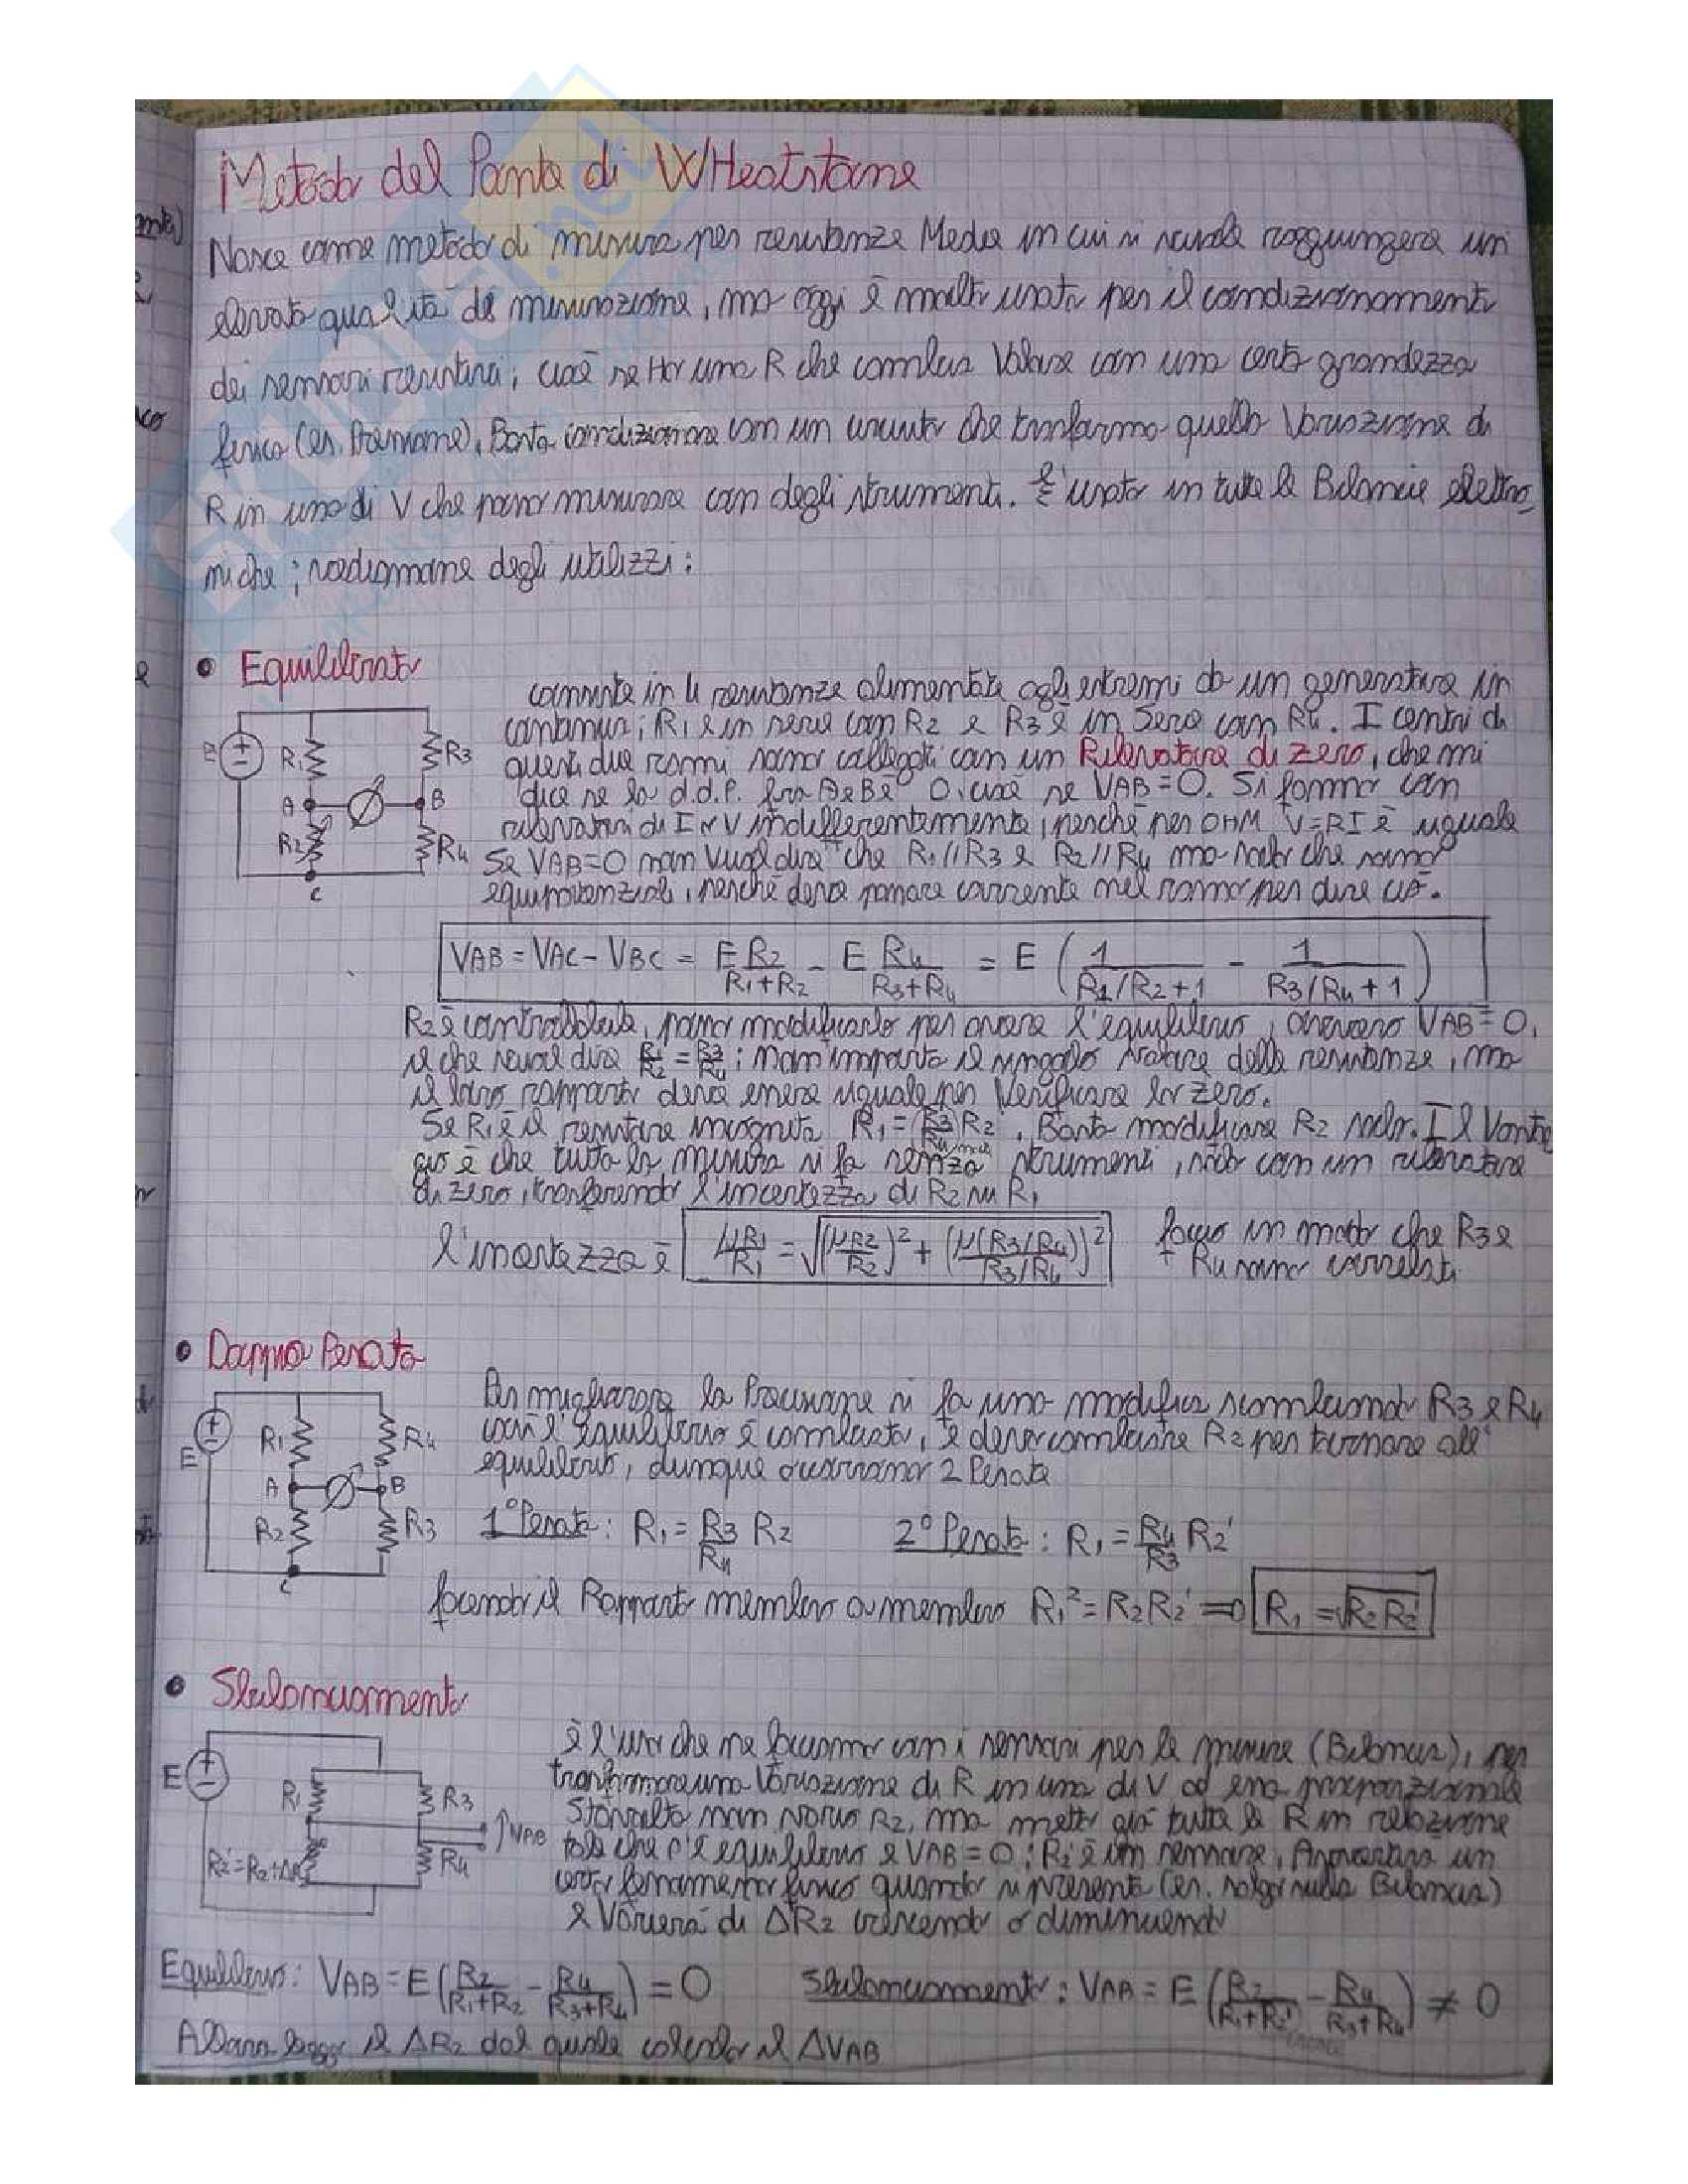 Metodo del Ponte di WHeatstone
Nasce come metodo di misura per resistenze Medie in cui si vuole raggiungere un
elevata qualità di misurazione, ma oggi è molto usato per il condizionamento
dei sensori resistivi, cioè se Ho una R che cambia Valore con una certa grandezza
fisica (es. Pressione), Basta condizionare con un circuito che trasforma quella Variazione di
R in una di V che posso misurare con degli strumenti. È usato in tutte le Bilancie elettro
niche; vediamone degli utilizzi:
• Equilibrato
consiste in 4 resistenze alimentate agli estremi da un generatore in
continua; R1 è in serie con R2 e R3 è in Serie con R4. I centri di
questi due rami sono collegati con un Rilevatore di zero, che mi
dice se la d.d.P. fra A e B è 0, cioè se VAB=0. Si fanno con
rilevatori di I o V indifferentemente, perché per OHM V=RI è uguale
Se VAB=0 non vuol dire che R1//R3 e R2//R4 ma solo che sono
equipotenziali, perché deve passare corrente nel ramo per dire ciò.
E
R1
R3
A
B
R2
R4
C
VAB = VAC - VBC = E R2/(R1+R2) - E R4/(R3+R4) = E (1/(R1/R2+1) - 1/(R3/R4+1))
R2 è controllabile, posso modificarlo per avere l'equilibrio, ovvero VAB=0,
il che vuol dire R1/R2 = R3/R4; non importa il singolo valore delle resistenze, ma
il loro rapporto deve essere uguale per Verificare lo zero.
Se R1 è il resistore incognito R1 = (R3/R4) R2, Basta modificare R2 solo. Il Vantag
gio è che tutta la misura si fa senza strumenti, solo con un rilevatore
di zero, trasferendo l'incertezza di R2 su R1
l'incertezza è μR1/R1 = √((μR2/R2)² + (μ(R3/R4)/(R3/R4))²) faccio in modo che R3 e
R4 siano correlati
• Doppia Pesata
Per migliorare la Precisione si fa una modifica scambiando R3 e R4
così l'equilibrio è cambiato, e devo cambiare R2 per tornare all'
equilibrio, dunque avverranno 2 Pesate
E
R1
R4
A
B
R2
R3
C
1° Pesata: R1 = R3/R4 R2 2° Pesata: R1 = R4/R3 R2'
facendo il Rapporto membro a membro R1² = R2R2' => R1 = √R2R2'
• Sbilanciamento
è l'uso che ne facciamo con i sensori per le misure (Bilancia), per
trasformare una Variazione di R in una di V ad essa proporzionale
Stavolta non vario R2, ma metto già tutte le R in relazione
tale che c'è equilibrio e VAB=0; R2 è un sensore, Aspettiva un
certo fenomeno fisico quando si presenta (es. salgo sulla Bilancia)
e Varierà di ΔR2 crescendo o diminuendo
E
R1
R3
VAB
R2'=R2+ΔR
R4
Equilibrio: VAB = E (R2/(R1+R2) - R4/(R3+R4)) = 0 Sbilanciamento: VAB = E (R2/(R1+R2') - R4/(R3+R4)) ≠ 0
Allora leggo il ΔR2 dal quale calcolo il ΔVAB